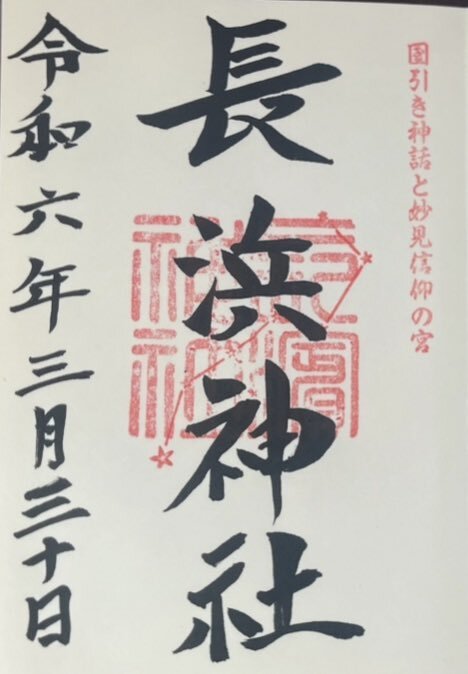 國引き神話と妙見信仰の宮
長浜神社
長濱神社
令和六年三月三十日